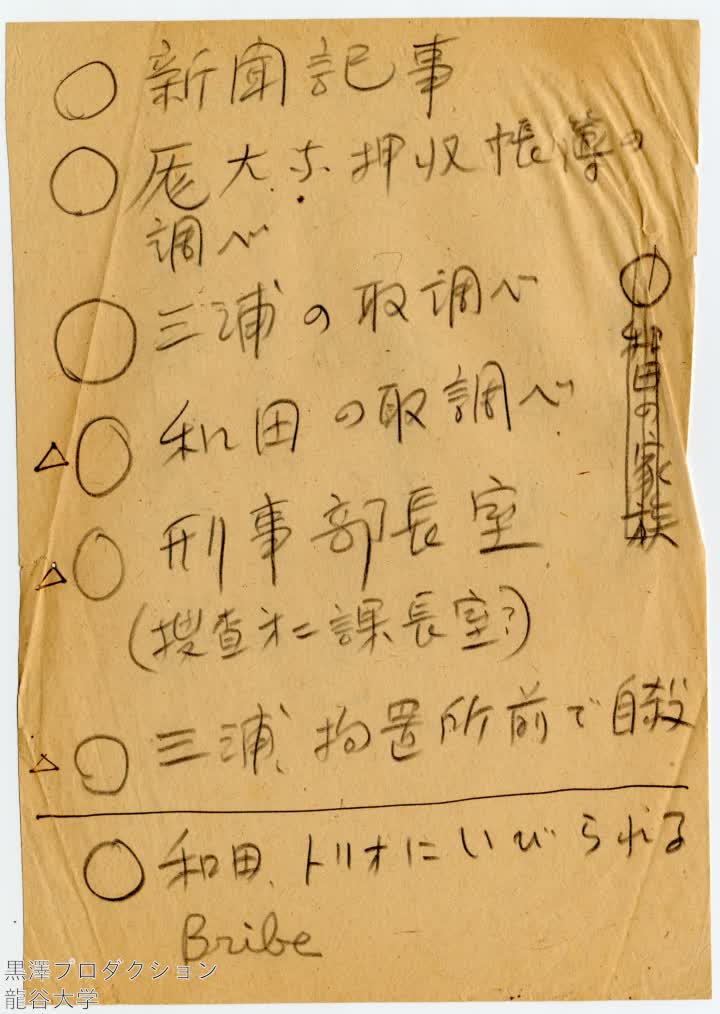 ○ 新聞記事
○ 厖大な押収帳簿の
調べ
○ 三浦の取調べ
△○ 和田の取調べ
△○ 刑事部長室
(捜査才二課長室?)
△○ 三浦、拘置所前で自殺
○ 和田の家族
○ 和田、トリオにいびられる
Bribe
黒澤プロダクション
龍谷大学